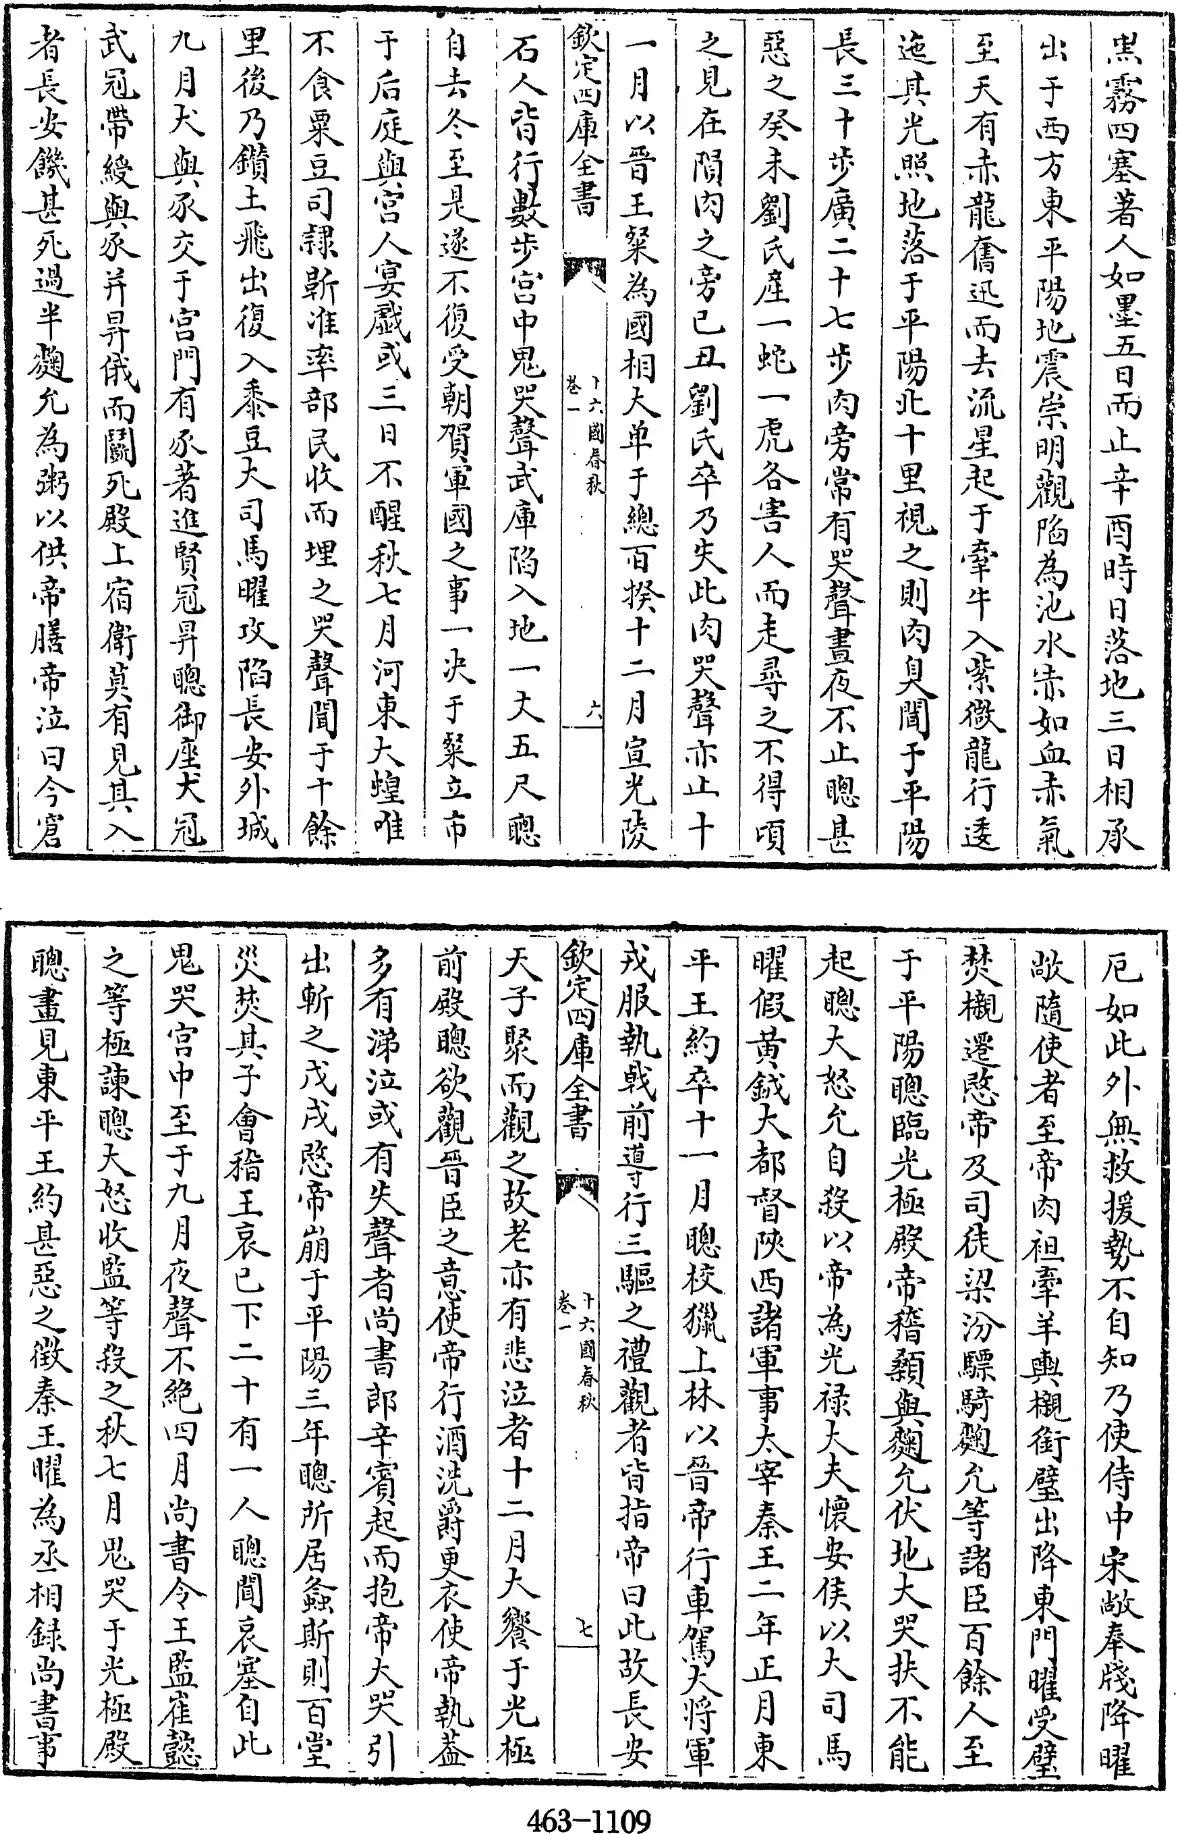 黑霧四塞著人如墨五日而止辛酉時日落地三日相承
出于西方東平陽地震崇明觀陷為池水赤如血赤氣
至天有赤龍奮迅而去流星起于牽牛入紫微龍行逶
迤其光照地落于平陽北十里視之則肉臭聞于平陽
長三十歩廣二十七歩肉旁常有哭聲晝夜不止聰甚
惡之癸未劉氏產一蛇一虎各害人而走尋之不得頃
之見在隕肉之旁己丑劉氏卒乃失此肉哭聲亦止十
一月以晉王粲為國相大单于總百揆十二月宣光陵
欽定四庫全書
十六國春秋
卷一
六
石人皆行數步宫中鬼哭聲武庫陷入地一丈五尺聰
自去冬至是遂不復受朝賀軍國之事一决于粲立市
于后庭與宫人宴戲或三日不醒秋七月河東大蝗唯
不食粟豆司隷靳准率部民收而埋之哭聲聞于十餘
里後乃鑽土飛出復入黍豆大司馬曜攻陷長安外城
九月犬與豕交于宫門有豕著進賢冠昇聰御座犬冠
武冠帶綬與豕并昇俄而鬭死殿上宿衛莫有見其入
者長安饑甚死過半麴允為粥以供帝膳帝泣曰今窘
厄如此外無救援勢不自知乃使侍中宋敞奉牋降曜
敞隨使者至帝肉袒牽羊輿櫬銜璧出降東門曜受璧
焚櫬遷愍帝及司徒梁汾驃騎麴允等諸臣百餘人至
于平陽聰臨光極殿帝稽顙與麴允伏地大哭扶不能
起聰大怒允自殺以帝為光禄大夫懷安侯以大司馬
曜假黄鉞大都督陝西諸軍事太宰秦王二年正月東
平王約卒十一月聰校獵上林以晉帝行車駕大将軍
戎服執戟前導行三驅之禮觀者皆指帝曰此故長安
欽定四庫全書
十六國春秋
卷一
七
天子聚而觀之故老亦有悲泣者十二月大饗于光極
前殿聰欲觀晉臣之意使帝行酒洗爵更衣使帝執葢
多有涕泣或有失聲者尚書郎辛賓起而抱帝大哭引
出斬之戊戌愍帝崩于平陽三年聰所居螽斯則百堂
災焚其子會稽王衷已下二十有一人聰聞哀塞自此
鬼哭宫中至于九月夜聲不絶四月尚書令王監崔懿
之等極諫聰大怒收監等殺之秋七月鬼哭于光極殿
聰晝見東平王約甚惡之徵秦王曜為丞相録尚書事
463-1109